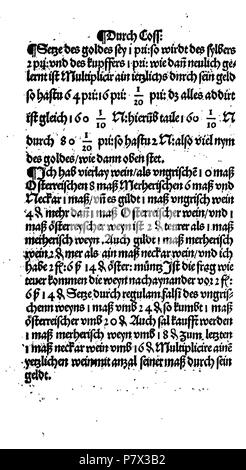 ¶Durch Coſſ:
¶Setze des goldes ſey 1 pri: ſo wirdt des ſylbers
2 pri: vnd des kupffers 1 pri: wie dañ neulich ge
lernt iſt Multiplicir ain ietzlichs durch ſein geld
ſo haſtu 64 pri: 16 pri: 1/10 pri: dz alles addirt
iſt gleich 160 1/10 N: hierüb taile 160 1/10 N:
durch 80 1/10 pri: ſo haſtu 2 N: alſo viel nym
des goldes/wie dann oben ſtet.
¶Ich hab vierlay wein/als vngriſchē 10 maß
Öſterreiſchen 8 maß Merheriſchen 6 maß vnd
Neckar 1 maß/vñ es gilt 1 maß vngriſch wein
4 ₰ mehr dañ 1 maß Öſterriſcher wein/vnd 1
maß öſterreyſcher weyn iſt 2 ₰ teurer als 1 maß
merheriſch weyn. Auch gilt 1 maß merheriſch
wein 2 ₰ mer als ain maß neckar wein/vnd ich
habe 2 fl: 6 ß 14 ₰ öſter: müntz Iſt die frag wie
teuer kommen die wey nach aynander vor 2 fl:
6 ß 14 ₰ Setze durch regulam falſi des vngri⸗
ſchenn weyns 1 maß vmb 24 ₰ ſo kumbt 1 maß
öſterreiſcher vmb 20 ₰ Auch ſal kaufft werden
1 maß merheriſch weyn vmb 18 ₰ zum letzten
1 maß neckar wein vmb 16 ₰ Multiplicire ainē
yetzlichen wein mit anzal ſeiner maß durch ſein
geldt.
a alamy stock photo